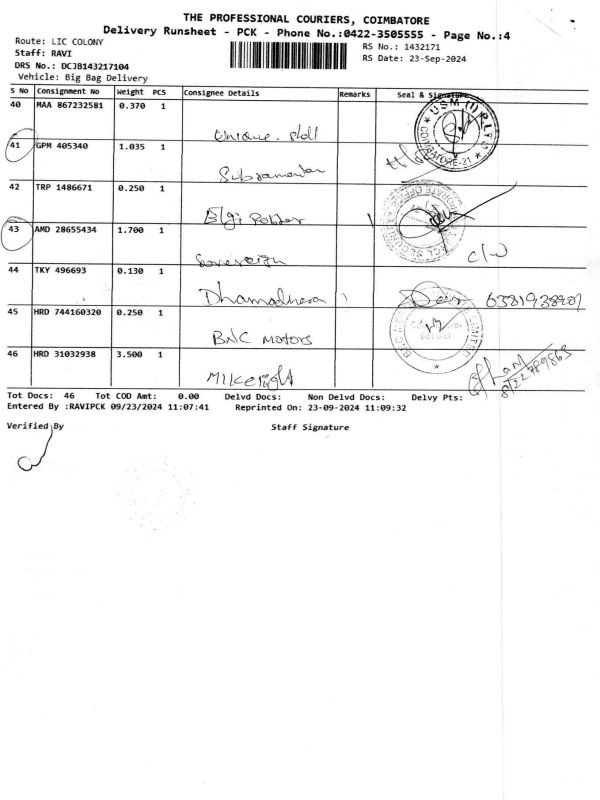 THE PROFESSIONAL COURIERS, COIMBATORE
Delivery Runsheet - PCK - Phone No.:0422-3505555 - Page No.:4
Route: LIC COLONY
RS No.: 1432171
Staff: RAVI
RS Date: 23-Sep-2024
DRS No.: DCJB143217104
Vehicle: Big Bag Delivery
S No Consignment No Weight PCS Consignee Details Remarks Seal & Signature
40 MAA 867232581 0.370 1
Unique
USM (I) P LTD
COIMBATORE-21
41 GPM 405340 1.035 1
Subramanian
42 TRP 1486671 0.250 1
Elgi
43 AMD 28655434 1.700 1
Sovereign
44 TKY 496693 0.130 1
Dhamodharan
45 HRD 744160320 0.250 1
BNC Motors
46 HRD 31032938 3.500 1
Tot Docs: 46 Tot COD Amt: 0.00 Delvd Docs: Non Delvd Docs: Delvy Pts:
Entered By :RAVIPCK 09/23/2024 11:07:41 Reprinted On: 23-09-2024 11:09:32
Verified By Staff Signature